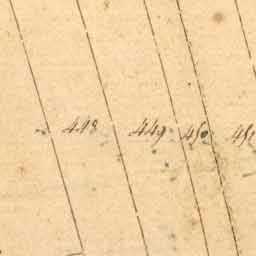 448 449 450 451